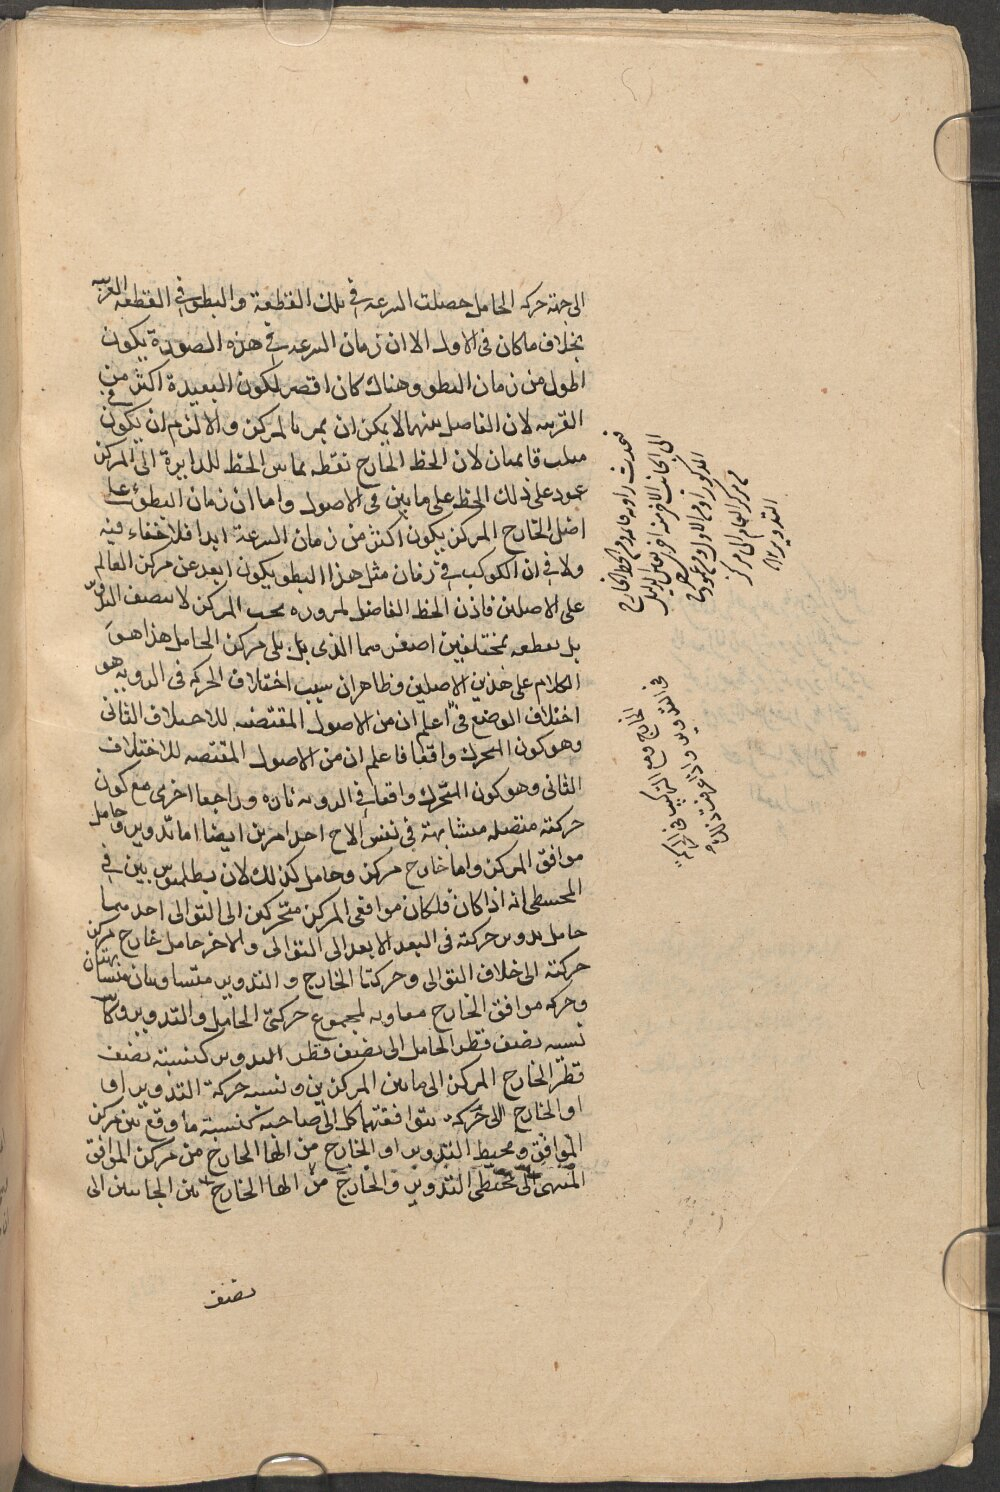 الى جهة حركه الحامل حصلت السرعه في تلك القطعة والبطوء في القطعه القريبه
بخلاف ما كان فى الاول الا ان زمان السرعه في هذه الصورة يكون
اطول من زمان البطو وهناك كان اقصر لكون البعيدة اكثر من
القريبه لان الفاصل بينهما لا يمكن ان يمر بالمركز والا لزم ان يكون في
مثلث قايمتان لان الخط الخارج نقطه تماس الخط للدايرة الى المركز
عمود على ذلك الخط على ما بين فى الاصول واما ان زمان البطوء على
اصل الخارج المركز يكون اكثر من زمان السرعة ابدا فلا خفاء فيه
ولا في ان الكوكب في زمان مثل هذا البطو يكون ابعد عن مركز العالم
على الاصلين فاذن الخط الفاصل لمروره بجب المركز لا ينصف التدوير
بل يقطعه بمختلفين اصغرهما الذى يلى مركز الحامل هذا هو
الكلام على هذين الاصلين وظاهر ان سبب اختلاف الحركه فى الرويه هو
اختلاف الوضع في اعلم ان من الاصول المقتضيه للاختلاف الثانى
وهو كون المحرك واقفا فاعلم ان من الاصول المقتضيه للاختلاف
الثانى وهو كون المتحرك واقفا في الرويه تاره وراجعا اخرى مع كون
حركته متصله متشابهة في نفس الاح احد امرين ايضا اما تدوير وحامل
موافق المركز واما خارج مركز وحامل كذلك لان بطلميوس بين في
المجسطى انه اذا كان فلكان موافقى المركز متحركين الى التوالى احدهما
حامل تدوير حركته فى البعد الابعد الى التوالى والاخر حامل خارج مركز
حركته الى خلاف التوالى وحركتا الخارج والتدوير متساويتان متشابهتان
وحركه موافق الخارج مساويه لمجموع حركتى الحامل والتدوير وكانت
نسبه نصف قطر الحامل الى نصف قطر التدوير كنسبة نصف
قطر الخارج المركز الى ما بين المركزين ونسبه حركة التدوير او
او الخارج الى حركه موافقتهما كل الى صاحبه كنسبة ما وقع بين مركز
الموافق ومحيط التدوير او الخارج من الخط الخارج من مركز الموافق
المنتهى الى محيطى التدوير والخارج من الخط الخارج بين الجانبين الى
نصف
فحدث زاويه قايمه من الخط الخارج
الى الجانب الاخر منه
المذكور
من مركز العالم الى مركز
التدوير ١٢
الخارج ومع التركيب فى المركز
فى التدوير واذا عرفت ذلك